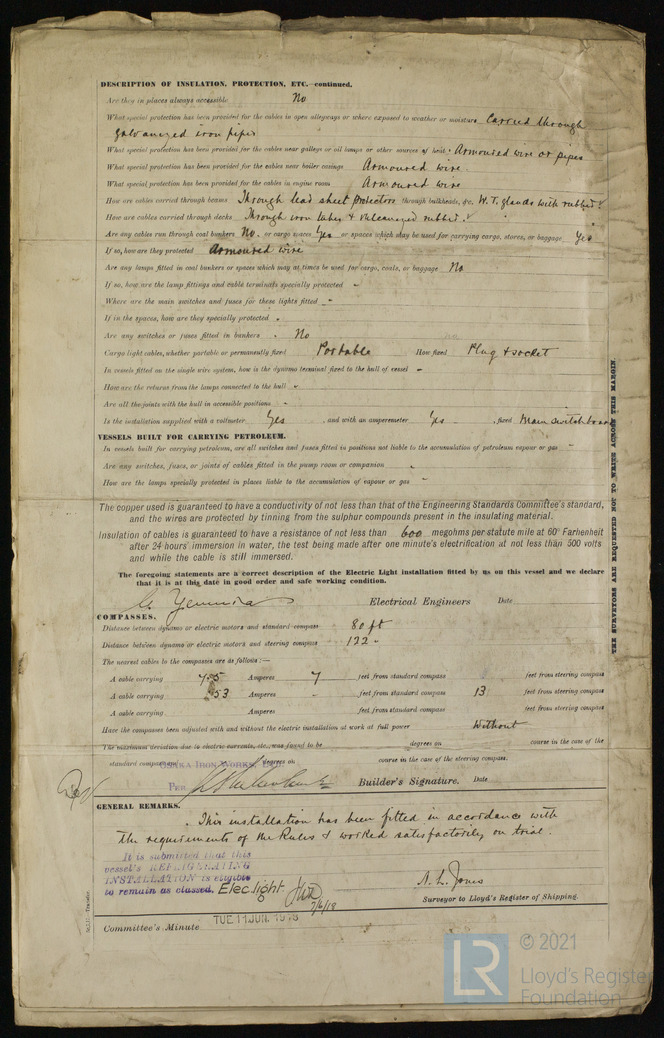 DESCRIPTION OF INSULATION, PROTECTION, ETC.—continued.
Are they in places always accessible No
What special protection has been provided for the cables in open alleyways or where exposed to weather or moisture Carried through
galvanized iron pipes
What special protection has been provided for the cables near galleys or oil lamps or other sources of heat Armoured wire or pipes
What special protection has been provided for the cables near boiler casings Armoured wire.
What special protection has been provided for the cables in engine room Armoured wire
How are cables carried through beams Through lead sheet protectors through bulkheads, &c. W.T. glands with rubber
How are cables carried through decks Through iron tubes & vulcanized rubber
Are any cables run through coal bunkers No or cargo spaces Yes or spaces which may be used for carrying cargo, stores, or baggage Yes
If so, how are they protected Armoured wire
Are any lamps fitted in coal bunkers or spaces which may at times be used for cargo, coals, or baggage No
If so, how are the lamp fittings and cable terminals specially protected -
Where are the main switches and fuses for these lights fitted -
If in the spaces, how are they specially protected -
Are any switches or fuses fitted in bunkers No
Cargo light cables, whether portable or permanently fixed Portable How fixed Plug & socket
In vessels fitted on the single wire system, how is the dynamo terminal fixed to the hull of vessel -
How are the returns from the lamps connected to the hull -
Are all the joints with the hull in accessible positions -
Is the installation supplied with a voltmeter Yes , and with an amperemeter Yes , fixed Main switchboard
VESSELS BUILT FOR CARRYING PETROLEUM.
In vessels built for carrying petroleum, are all switches and fuses fitted in positions not liable to the accumulation of petroleum vapour or gas -
Are any switches, fuses, or joints of cables fitted in the pump room or companion -
How are the lamps specially protected in places liable to the accumulation of vapour or gas -
The copper used is guaranteed to have a conductivity of not less than that of the Engineering Standards Committee's standard,
and the wires are protected by tinning from the sulphur compounds present in the insulating material.
Insulation of cables is guaranteed to have a resistance of not less than 600 megohms per statute mile at 60° Farhenheit
after 24 hours' immersion in water, the test being made after one minute's electrification at not less than 500 volts
and while the cable is still immersed.
The foregoing statements are a correct description of the Electric Light installation fitted by us on this vessel and we declare
that it is at this date in good order and safe working condition.
Electrical Engineers Date
COMPASSES.
Distance between dynamo or electric motors and standard compass 80 ft
Distance between dynamo or electric motors and steering compass 122 "
The nearest cables to the compasses are as follows:—
A cable carrying Amperes 7 feet from standard compass feet from steering compass
A cable carrying .53 Amperes - feet from standard compass 13 feet from steering compass
A cable carrying Amperes feet from standard compass feet from steering compass
Have the compasses been adjusted with and without the electric installation at work at full power Without
The maximum deviation due to electric currents, etc., was found to be degrees on course in the case of the
standard compass and degrees on course in the case of the steering compass.
OSAKA IRON WORKS, LTD.
PER Builder's Signature. Date
GENERAL REMARKS.
This installation has been fitted in accordance with
the requirements of the Rules & worked satisfactorily on trial.
It is submitted that this
vessel's REFRIGERATING
INSTALLATION is eligible
to remain as classed. Elec light. 7/6/18
A. L. Jones
Surveyor to Lloyd's Register of Shipping.
TUE 11 JUN. 1918
Committee's Minute
THE SURVEYORS ARE REQUESTED NOT TO WRITE ACROSS THIS MARGIN.
LR © 2021
Lloyd's Register
Foundation